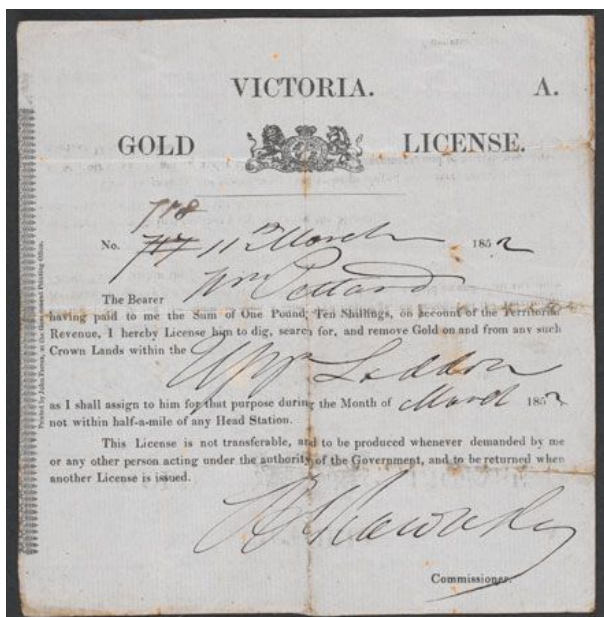 VICTORIA. A.
GOLD LICENSE.
778
No. 717 11th March 1852
The Bearer Wm Pollard
having paid to me the Sum of One Pound, Ten Shillings, on account of the Territorial
Revenue, I hereby License him to dig, search for, and remove Gold on and from any such
Crown Lands within the
Upper Loddon
as I shall assign to him for that purpose during the Month of March 1852
not within half-a-mile of any Head Station.
This License is not transferable, and to be produced whenever demanded by me
or any other person acting under the authority of the Government, and to be returned when
another License is issued.
Commissioner.
Printed by John Ferres, at the Government Printing Office.